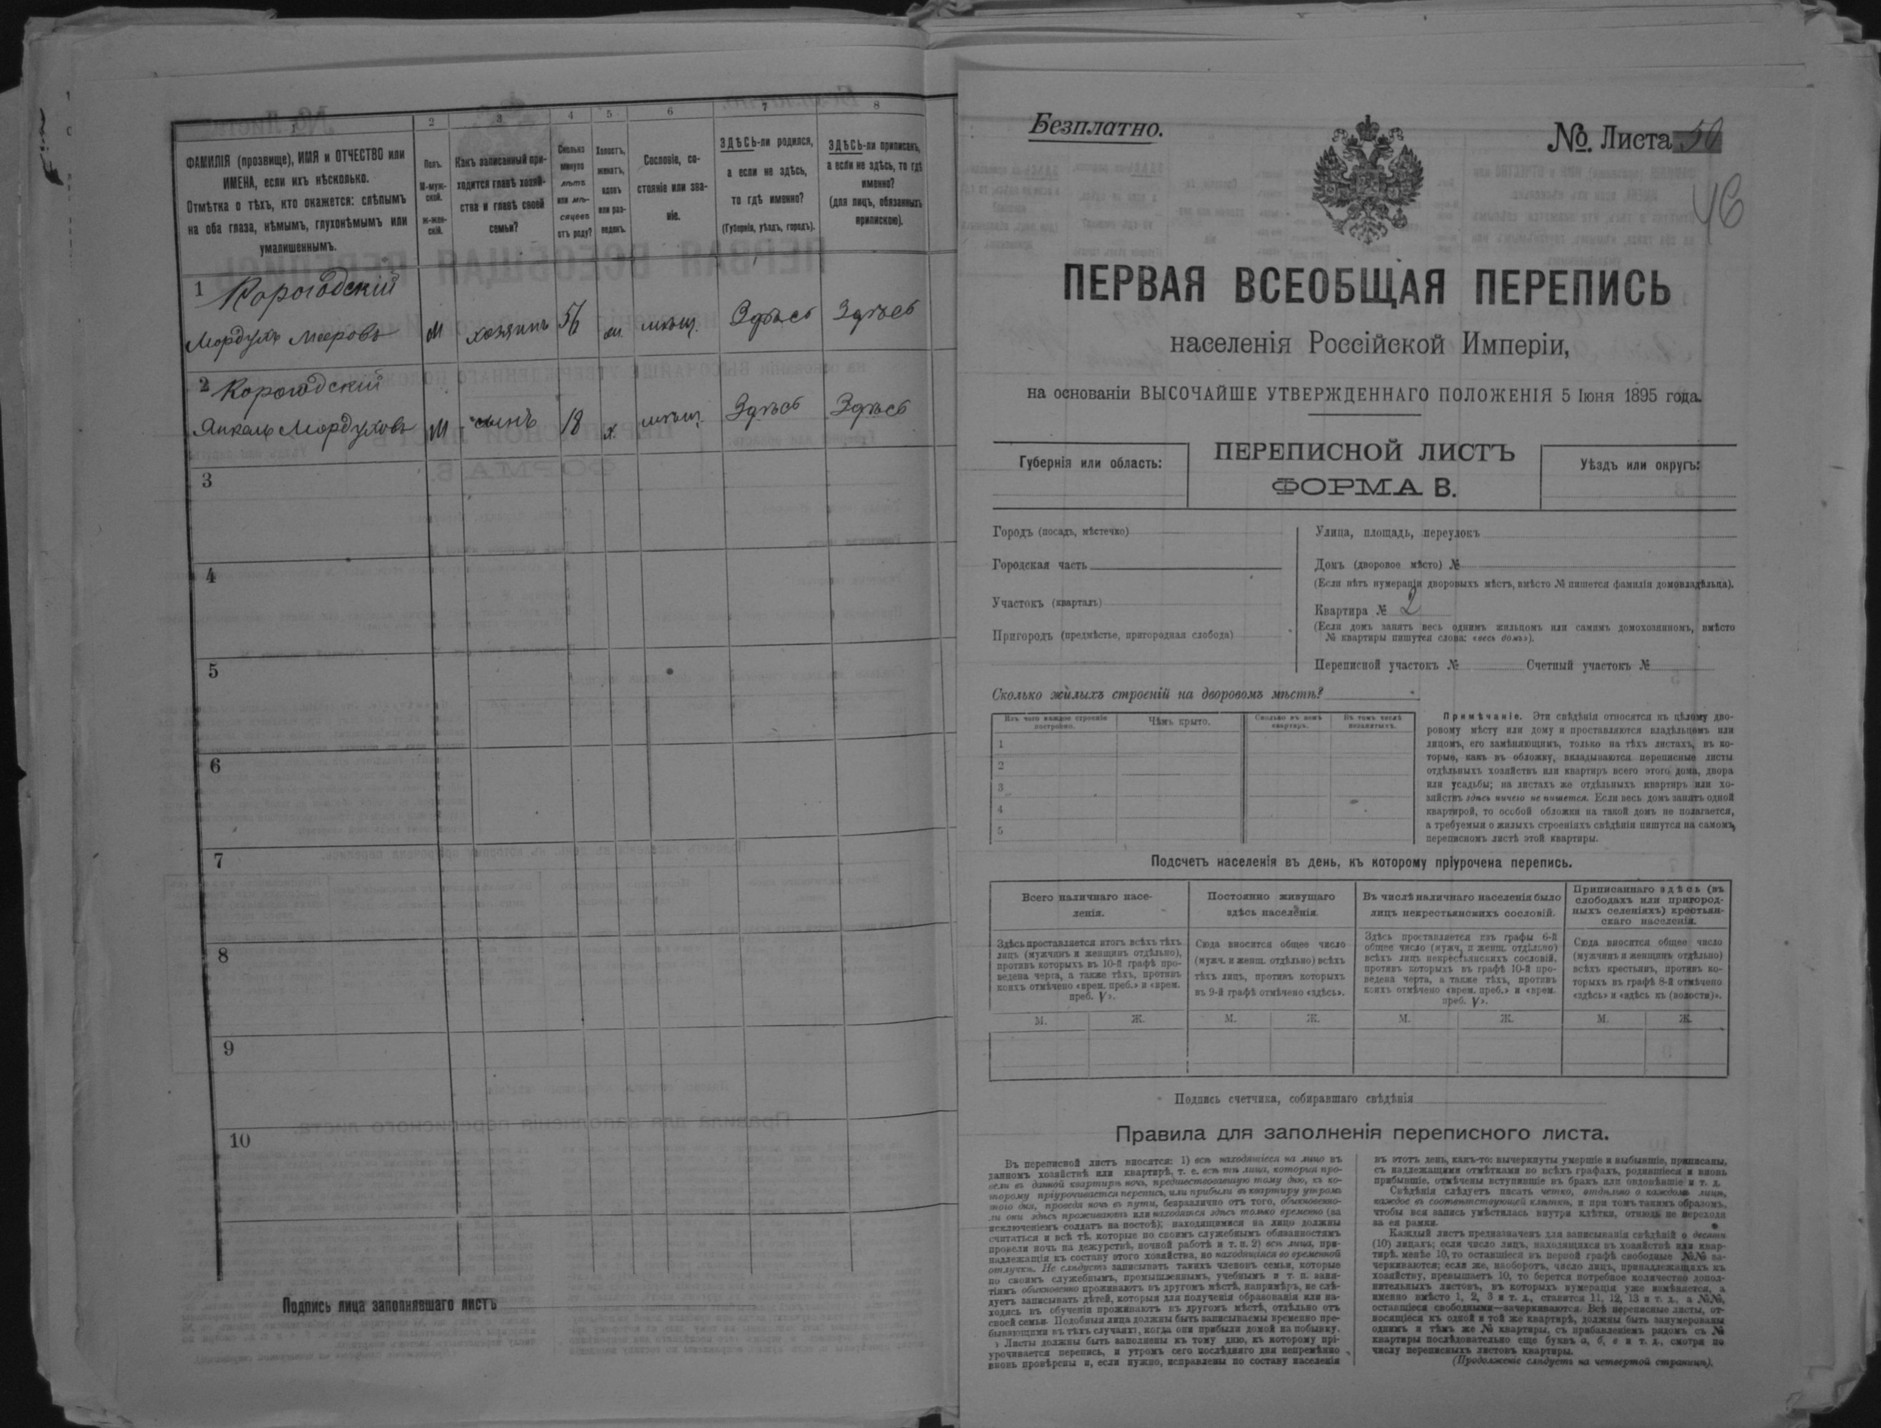 1
2
3
4
5
6
7
8
ФАМИЛІЯ (прозвище), ИМЯ и ОТЧЕСТВО или
ИМЕНА, если ихъ нѣсколько.
Отмѣтка о тѣхъ, кто окажется: слѣпымъ
на оба глаза, нѣмымъ, глухонѣмымъ или
умалишеннымъ.
Полъ.
М-муж-
ской.
Ж-жен-
скій.
Какъ записанный при-
ходится главѣ хозяй-
ства и главѣ своей
семьи?
Сколько
минуло
лѣтъ
или мѣ-
сяцевъ
отъ роду?
Холостъ,
женатъ,
вдовъ
или раз-
веденъ.
Сословіе, со-
стояніе или зва-
ніе.
ЗДѢСЬ-ли родился,
а если не здѣсь,
то гдѣ именно?
(Губернія, уѣздъ, городъ).
ЗДѢСЬ-ли приписанъ,
а если не здѣсь, то гдѣ
именно?
(для лицъ, обязанныхъ
припискою).
1 Корогодскій
Мордухъ Мееровъ М хозяинъ 56 мѣщ. Здѣсь Здѣсь
2 Корогодскій
Янкель Мордуховъ М сынъ 18 х. мѣщ. Здѣсь Здѣсь
3
4
5
6
7
8
9
10
Подпись лица заполнявшаго листъ
Безплатно.
№. Листа 50
46
ПЕРВАЯ ВСЕОБЩАЯ ПЕРЕПИСЬ
населенія Россійской Имперіи,
на основаніи ВЫСОЧАЙШЕ УТВЕРЖДЕННАГО ПОЛОЖЕНІЯ 5 Іюня 1895 года.
Губернія или область:
ПЕРЕПИСНОЙ ЛИСТЪ
ФОРМА В.
Уѣздъ или округъ:
Городъ (посадъ, мѣстечко)
Городская часть
Участокъ (кварталъ)
Пригородъ (предмѣстье, пригородная слобода)
Улица, площадь, переулокъ
Домъ (дворовое мѣсто) №
(Если нѣтъ нумераціи дворовыхъ мѣстъ, вмѣсто № пишется фамилія домовладѣльца).
Квартира № 2
(Если домъ занятъ весь однимъ жильцомъ или самимъ домохозяиномъ, вмѣсто
№ квартиры пишутся слова: «весь домъ»).
Переписной участокъ № Счетный участокъ №
Сколько жилыхъ строеній на дворовомъ мѣстѣ?
Изъ чего каждое строеніе
построено.
Чѣмъ крыто.
Сколько въ немъ
квартиръ.
Въ томъ числѣ
незанятыхъ.
1
2
3
4
5
Примѣчаніе. Эти свѣдѣнія относятся къ цѣлому дво-
ровому мѣсту или дому и проставляются владѣльцемъ или
лицомъ, его замѣняющимъ, только на тѣхъ листахъ, въ ко-
торые, какъ въ обложку, вкладываются переписные листы
отдѣльныхъ хозяйствъ или квартиръ всего этого дома, двора
или усадьбы; на листахъ же отдѣльныхъ квартиръ или хо-
зяйствъ здѣсь ничего не пишется. Если весь домъ занятъ одной
квартирой, то особой обложки на такой домъ не полагается,
а требуемыя о жилыхъ строеніяхъ свѣдѣнія пишутся на самомъ
переписномъ листѣ этой квартиры.
Подсчетъ населенія въ день, къ которому пріурочена перепись.
Всего наличнаго насе-
ленія.
Здѣсь проставляется итогъ всѣхъ тѣхъ
лицъ (мужчинъ и женщинъ отдѣльно),
противъ которыхъ въ 10-й графѣ про-
ведена черта, а также тѣхъ, противъ
коихъ отмѣчено «врем. преб.» и «врем.
преб. V».
Постоянно живущаго
здѣсь населенія.
Сюда вносится общее число
(мужч. и женщ. отдѣльно) всѣхъ
тѣхъ лицъ, противъ которыхъ
въ 9-й графѣ отмѣчено «здѣсь».
Въ числѣ наличнаго населенія было
лицъ некрестьянскихъ сословій.
Здѣсь проставляется изъ графы 6-й
общее число (мужч. и женщ. отдѣльно)
всѣхъ лицъ некрестьянскихъ сословій,
противъ которыхъ въ графѣ 10-й про-
ведена черта, а также тѣхъ, противъ
коихъ отмѣчено «врем. преб.» и «врем.
преб. V».
Приписаннаго здѣсь (въ
слободахъ или пригород-
ныхъ селеніяхъ) крестьян-
скаго населенія.
Сюда вносится общее число
(мужчинъ и женщинъ отдѣльно)
всѣхъ крестьянъ, противъ ко-
торыхъ въ графѣ 8-й отмѣчено
«здѣсь» и «здѣсь къ (волости)».
М. Ж. М. Ж. М. Ж. М. Ж.
Подпись счетчика, собиравшаго свѣдѣнія
Правила для заполненія переписного листа.
Въ переписной листъ вносятся: 1) всѣ находящіеся на лицо въ
данномъ хозяйствѣ или квартирѣ, т. е. всѣ тѣ лица, которыя про-
вели въ данной квартирѣ ночь, предшествовавшую тому дню, къ ко-
торому пріурочивается перепись, или прибыли въ квартиру утромъ
этого дня, проведя ночь въ пути, безразлично отъ того, обыкновенно-
ли они здѣсь проживаютъ или находятся здѣсь только временно (за
исключеніемъ солдатъ на постоѣ); находящимися на лицо должны
считаться и всѣ тѣ, которые по своимъ служебнымъ обязанностямъ
провели ночь на дежурствѣ, ночной работѣ и т. п. 2) всѣ лица, при-
надлежащія къ составу этого хозяйства, но находящіяся во временной
отлучкѣ. Не слѣдуетъ записывать такихъ членовъ семьи, которые
по своимъ служебнымъ, промышленнымъ, учебнымъ и т. п. заня-
тіямъ обыкновенно проживаютъ въ другомъ мѣстѣ, напримѣръ, не слѣ-
дуетъ записывать дѣтей, которыя для полученія образованія или на-
ходясь въ обученіи проживаютъ въ другомъ мѣстѣ, отдѣльно отъ
своей семьи. Подобныя лица должны быть записываемы временно пре-
бывающими въ тѣхъ случаяхъ, когда они прибыли домой на побывку.
Листы должны быть заполнены къ тому дню, къ которому прі-
урочивается перепись, и утромъ сего послѣдняго дня непремѣнно
вновь провѣрены и, если нужно, исправлены по составу населенія
въ этотъ день, какъ-то: вычеркнуты умершіе и выбывшіе, приписаны,
съ надлежащими отмѣтками во всѣхъ графахъ, родившіеся и вновь
прибывшіе, отмѣчены вступившіе въ бракъ или овдовѣвшіе и т. д.
Свѣдѣнія слѣдуетъ писать четко, отдѣльно о каждомъ лицѣ,
каждое въ соотвѣтствующей клѣткѣ, и при томъ такимъ образомъ,
чтобы вся запись умѣстилась внутри клѣтки, отнюдь не переходя
за ея рамки.
Каждый листъ предназначенъ для записыванія свѣдѣній о десяти
(10) лицахъ; если число лицъ, находящихся въ хозяйствѣ или квар-
тирѣ, менѣе 10, то оставшіеся въ первой графѣ свободные №№ за-
черкиваются; если же, наоборотъ, число лицъ, принадлежащихъ къ
хозяйству, превышаетъ 10, то берется потребное количество допол-
нительныхъ листовъ, въ которыхъ нумерація уже измѣняется, а
именно вмѣсто 1, 2, 3 и т. д., ставится 11, 12, 13 и т. д., а №№,
остающіеся свободными—зачеркиваются. Всѣ переписные листы, от-
носящіеся къ одной и той же квартирѣ, должны быть занумерованы
однимъ и тѣмъ же № квартиры, съ прибавленіемъ рядомъ съ №
квартиры послѣдовательно еще буквъ а, б, в и т. д., смотря по
числу переписныхъ листовъ квартиры.
(Продолженіе слѣдуетъ на четвертой страницѣ).